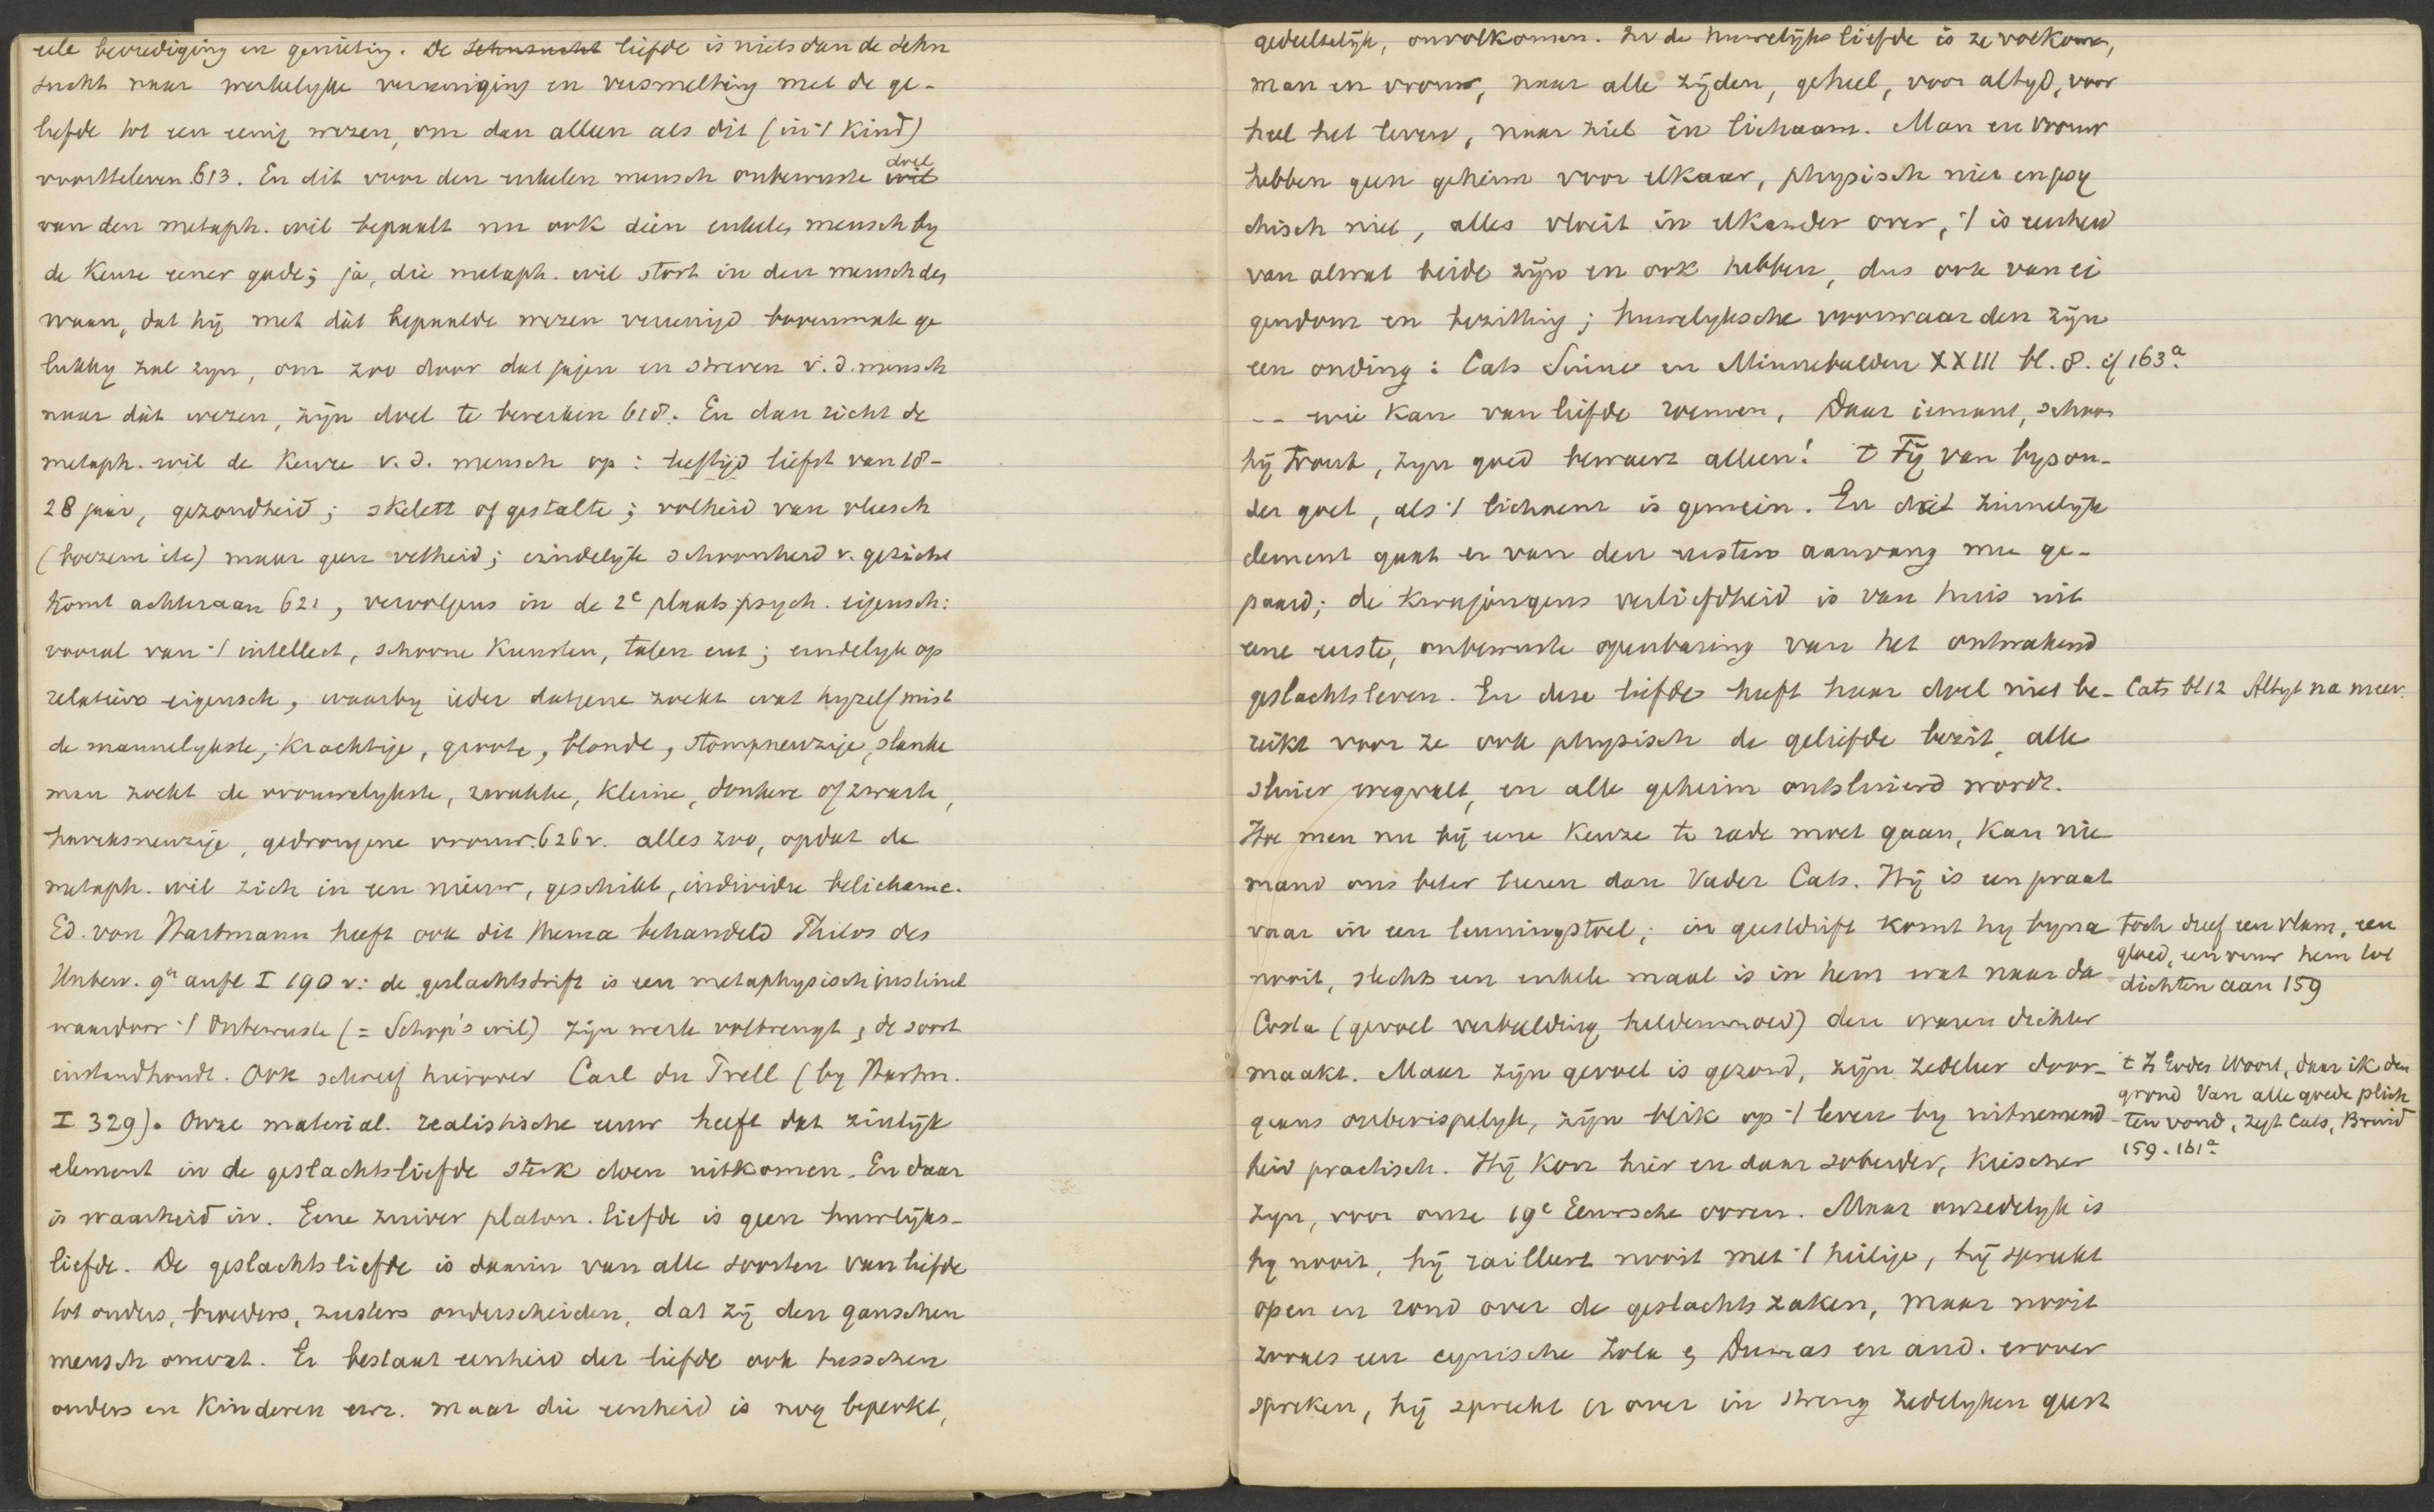 eele bevrediging en genieting. De Sehnsucht liefde is niets dan de Sehn
sucht naar werkelyke vereeniging en versmelting met de ge-
liefde tot een eenig wezen, om dan alleen als dit (in 't kind)
voortteleven. 613. En dit voor den enkelen mensch onbewuste wil doel
van den metaph. wil bepaalt nu ook dien enkelen mensch by
de keuze eener gade; ja, die metaph. wil stort in den mensch den
waan, dat hij met dát bepaalde wezen vereenigd bovenmate ge
lukkig zal zyn, om zoo door dat jagen en streven v.d. mensch
naar dát wezen, zijn doel te bewerken 618. En dan richt de
metaph. wil de keuze v.d. mensch op: leeftijd liefst van 18-
28 jaar, gezondheid; skelett of gestalte; volheid van vleesch
(boezem etc) maar geen vetheid; eindelyk schoonheid v. gezicht
komt achteraan 621, vervolgens in de 2e plaats psych. eigensch:
vooral van 't intellect, schoone kunsten, talen enz; eindelyk op
relatieve eigensch, waarby ieder datgene zoekt wat hyzelf mist
de mannelykste, krachtige, groote, blonde, stompneuzige, slanke
man zoekt de vrouwelykste, zwakke, kleine, donkere of zwarte,
haviksneuzige, gedrongene vrouw. 626v. alles zoo, opdat de
metaph. wil zich in een nieuw, geschikt, individu belichame.
Ed. von Hartmann heeft ook dit thema behandeld Philos des
Unbew. 9n aufl I 190 v: de geslachtsdrift is een metaphysisch instinct
waardoor 't Onbewuste (= Schop's wil) zijn werk volbrengt, de soort
instandhoudt. Ook schreef hierover Carl du Prell (by Hartm.
I 329). Onze material. realistische eeuw heeft dat zinlijk
element in de geslachtsliefde sterk doen uitkomen. En daar
is waarheid in. Eene zuiver platon. liefde is geen huwlijks-
liefde. De geslachtsliefde is daarin van alle soorten van liefde
tot ouders, broeders, zusters onderscheiden, dat zij den ganschen
mensch omvat. Er bestaat eenheid der liefde ook tusschen
ouders en kinderen enz. maar die eenheid is nog beperkt,
gedeeltelijk, onvolkomen. In de huwelijksliefde is ze volkomen,
man en vrouw, naar alle zijden, geheel, voor altyd, voor
heel het leven, naar ziel én lichaam. Man en vrouw
hebben geen geheim voor elkaar, physisch niet en psy
chisch niet, alles vloeit in elkander over, 't is eenheid
van alwat beide zijn en ook hebben, dus ook van ei
gendom en bezitting; huwelyksche voorwaarden zijn
een onding: Cats Sinne en Minnebeelden XXIII bl. 8. cf 163a.
-- wie kan van liefde roemen, Daar iemant, schoon
hij trout, zyn goed bewaert alleen! t Fij van byson-
der goet, als 't lichaem is gemein. En dat zinnelijk
element gaat er van den eersten aanvang mee ge-
paard; de kwajongens verliefdheid is van huis uit
eene eerste, onbewuste openbaring van het ontwakend
geslachtsleven. En deze liefde heeft haar doel niet be-
reikt voor ze ook physisch de geliefde bezit, alle
sluier wegvalt, en alle geheim ontsluierd wordt.
Hoe men nu bij eene keuze te rade moet gaan, kan nie
mand ons beter leeren dan Vader Cats. Hij is een praat
vaar in een leuningstoel; in geestdrift komt hy byna
nooit, slechts een enkele maal is in hem wat naar da
Costa (gevoel verbeelding heldenmoed) den waren dichter
maakt. Maar zijn gevoel is gezond, zijn zedeleer door-
gaans onberispelyk, zijn blik op 't leven by uitnemend-
heid practisch. Hij kon hier en daar soberder, kuischer
zyn, voor onze 19e Eeuwsche ooren. Maar onzedelyk is
hy nooit, hij railleert nooit met 't heilige, hij spreekt
open en rond over de geslachtszaken, maar nooit
zooals een cynische Zola & Dumas en and. erover
spreken, hij spreekt er over in streng zedelyken geest
Cats bl 12 Altyt na meer.
Toch dreef een vlam, een
gloed, een vuur hem tot
dichten aan 159
t Woort, daar ik den
grond Van alle goede plich
ten vond, zegt Cats, Bruid
159. 161a